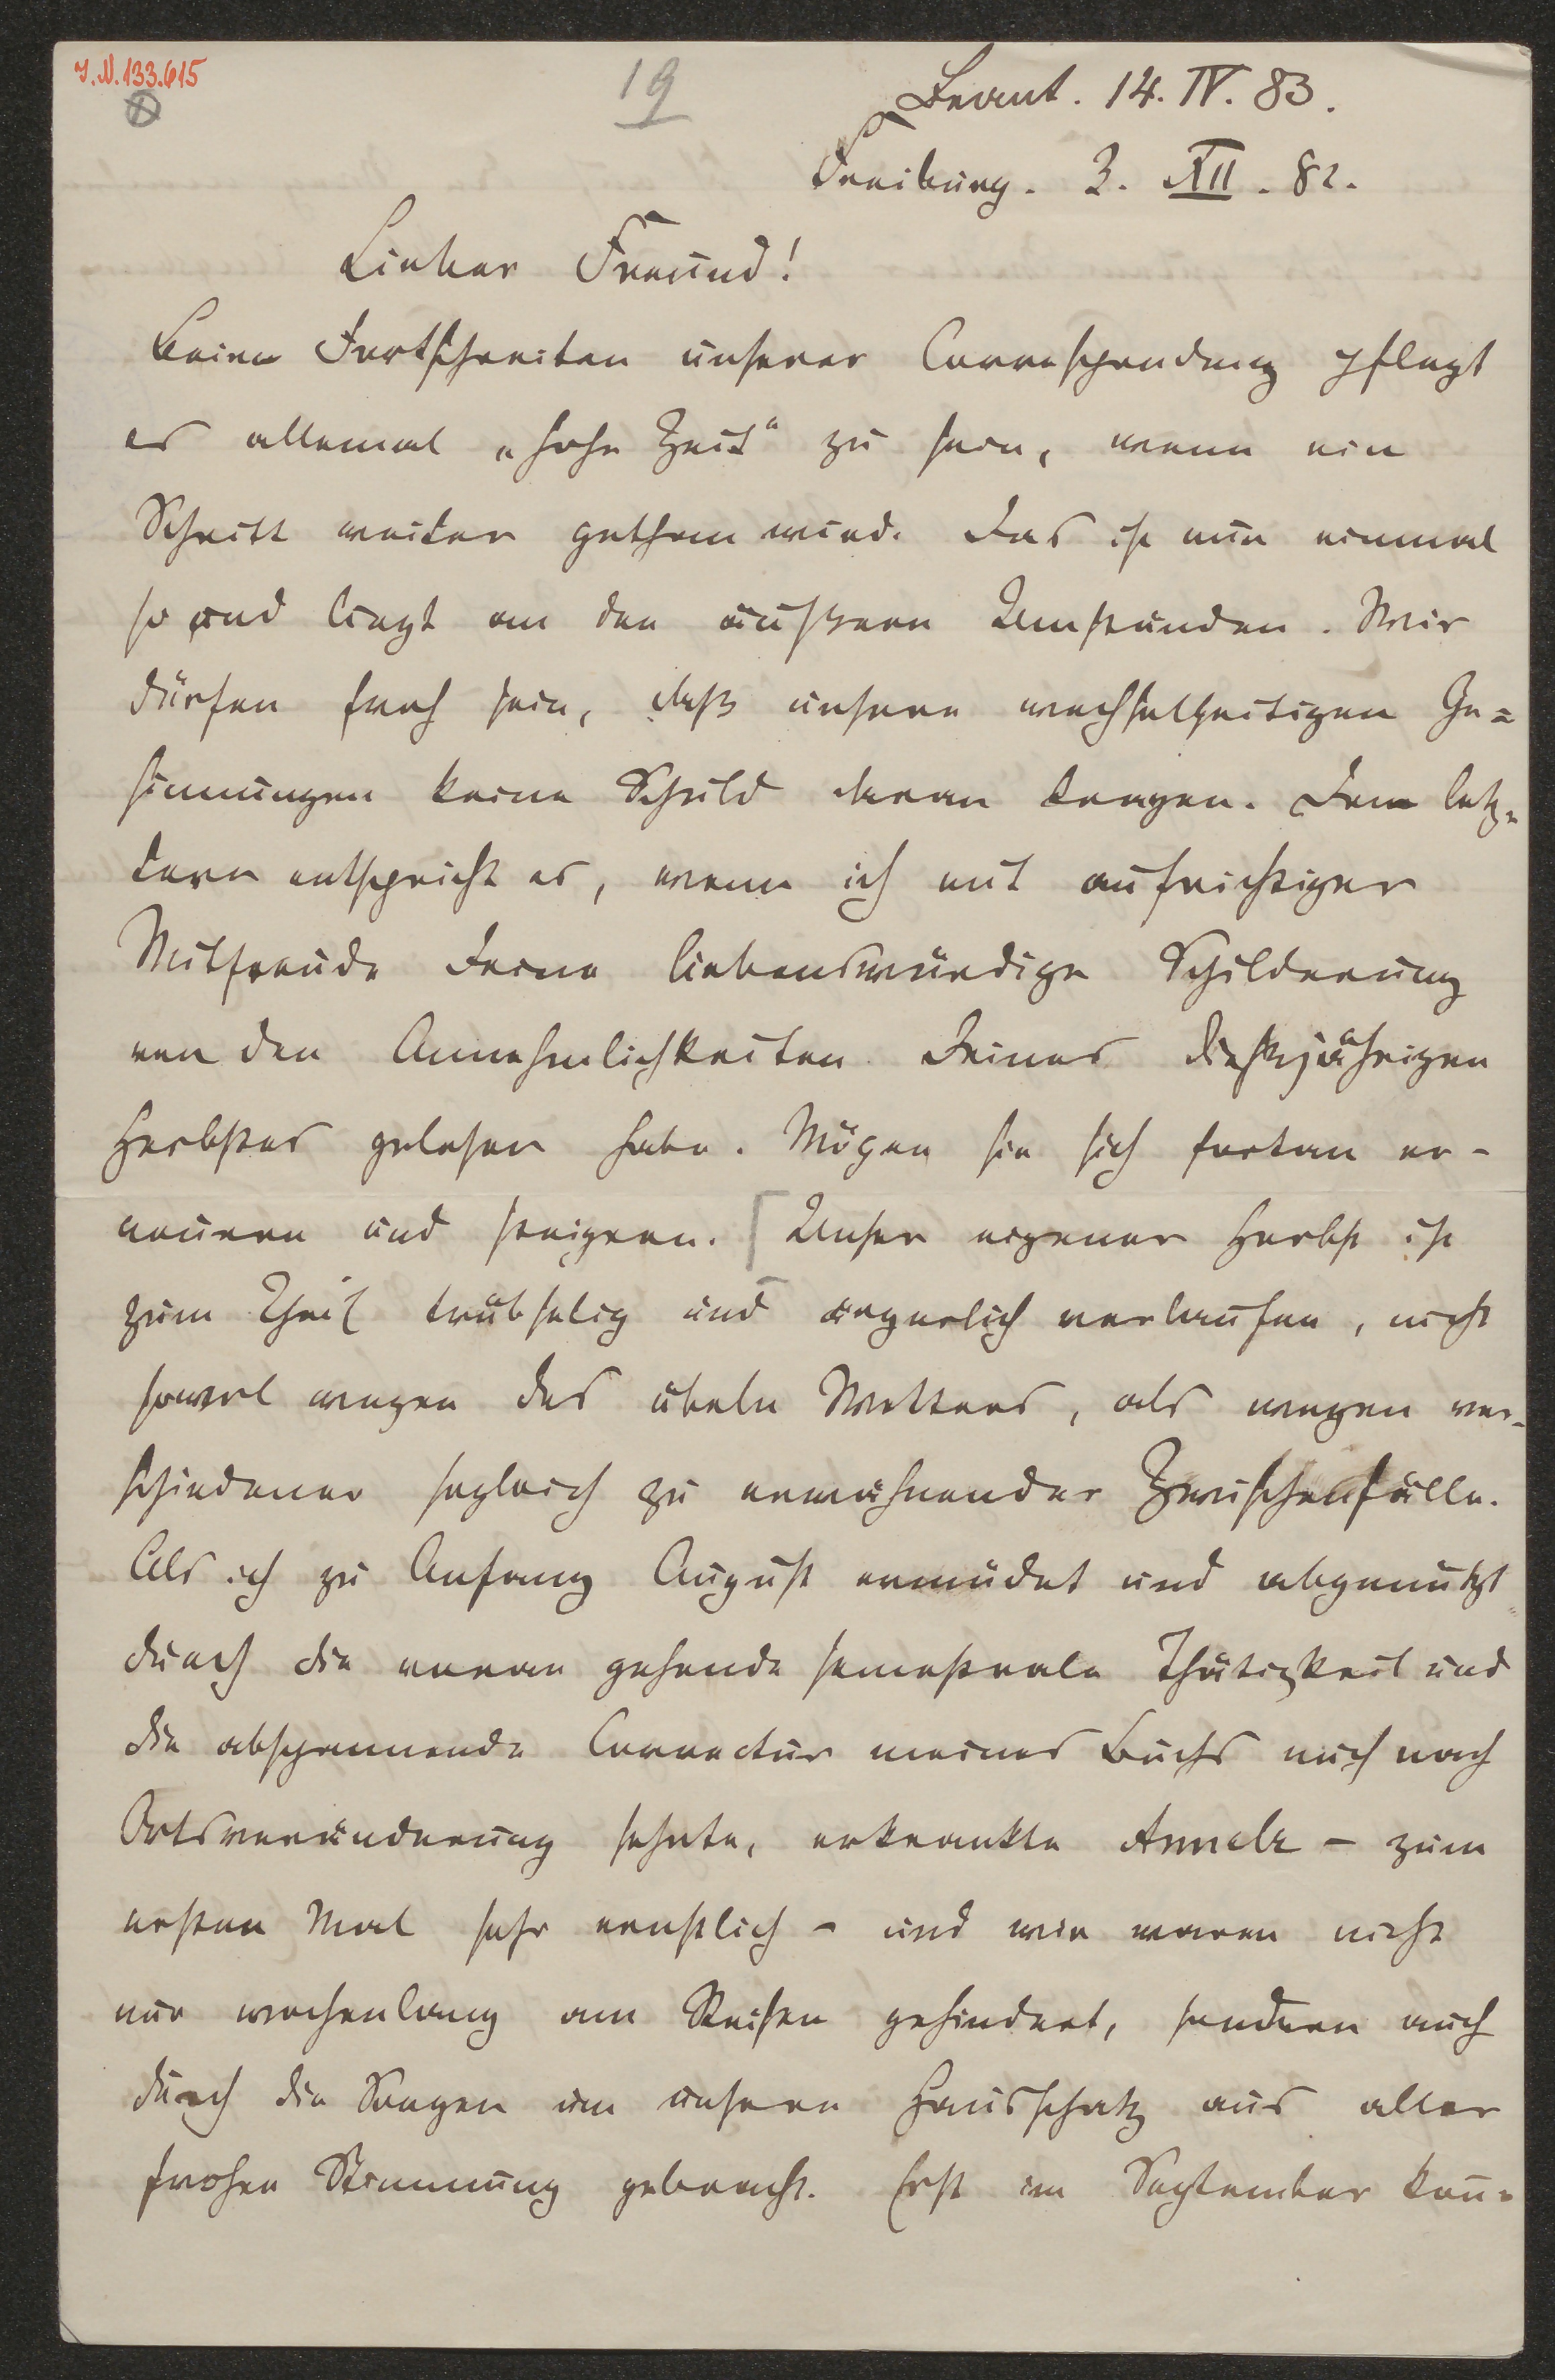 J.N. 133.615
19
Beant. 14. IV. 83.
Freiburg. 3. XII. 82.
Lieber Freund!
Beim Fortschreiten unserer Correspondenz pflegt
es allemal „hohe Zeit“ zu sein, wenn ein
Schritt weiter gethan wird. Das ist nun einmal
so und liegt an den äußeren Umständen. Wir
dürfen froh sein, daß unsere wechselseitigen Ge=
sinnungen keine Schuld daran tragen. Dem letz=
tern entspricht es, wenn ich mit aufrichtiger
Mitfreude Deine liebenswürdige Schilderung
von den Annehmlichkeiten Deines dießjährigen
Herbstes gelesen habe. Mögen sie sich fortan er-
neuern und steigern. [Unser eigener Herbst ist
zum Theil trübselig und ärgerlich verlaufen, nicht
sowol wegen des übeln Wetters, als wegen ver-
schiedener sogleich zu erwähnender Zwischenfälle.
Als ich zu Anfang August ermüdet und abgenützt
durch die voran gehende semestrale Thätigkeit und
die abspannende Correctur meines Buchs mich nach
Ortsveränderung sehnte, erkrankte Annele – zum
ersten Mal sehr ernstlich – und wir waren nicht
nur wochenlang am Reisen gehindert, sondern auch
durch die Sorgen um unsern Hausschatz aus aller
frohen Stimmung gebracht. Erst im September kon=